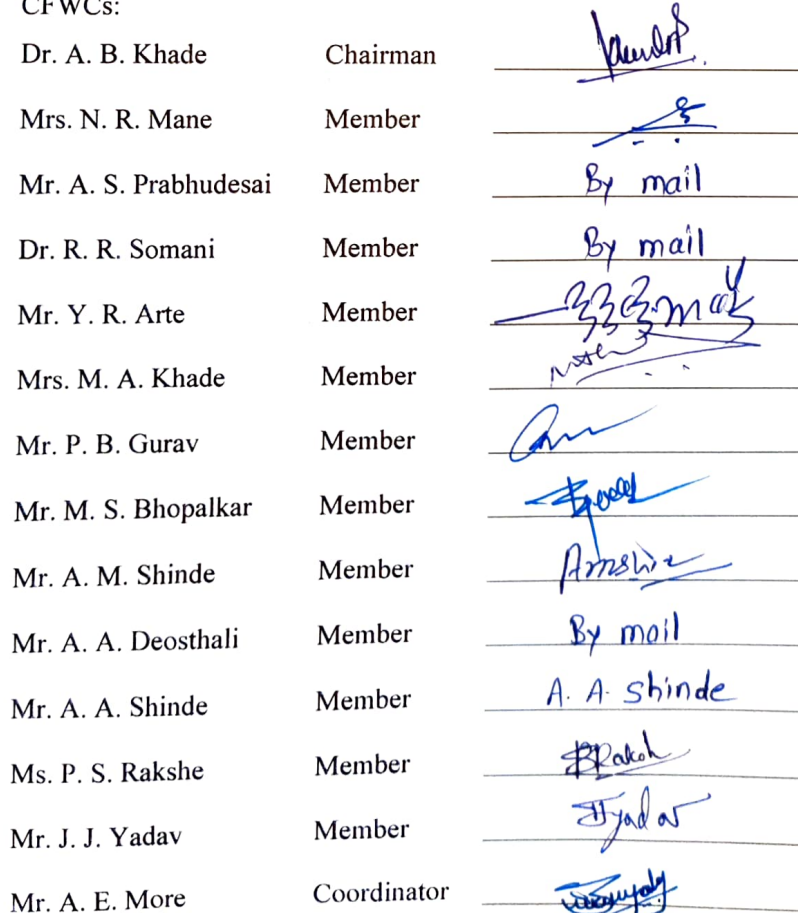 CFWCs:
Dr. A. B. Khade Chairman
Mrs. N. R. Mane Member
Mr. A. S. Prabhudesai Member By mail
Dr. R. R. Somani Member By mail
Mr. Y. R. Arte Member
Mrs. M. A. Khade Member
Mr. P. B. Gurav Member
Mr. M. S. Bhopalkar Member
Mr. A. M. Shinde Member
Mr. A. A. Deosthali Member By mail
Mr. A. A. Shinde Member A. A. Shinde
Ms. P. S. Rakshe Member
Mr. J. J. Yadav Member JJyadav
Mr. A. E. More Coordinator